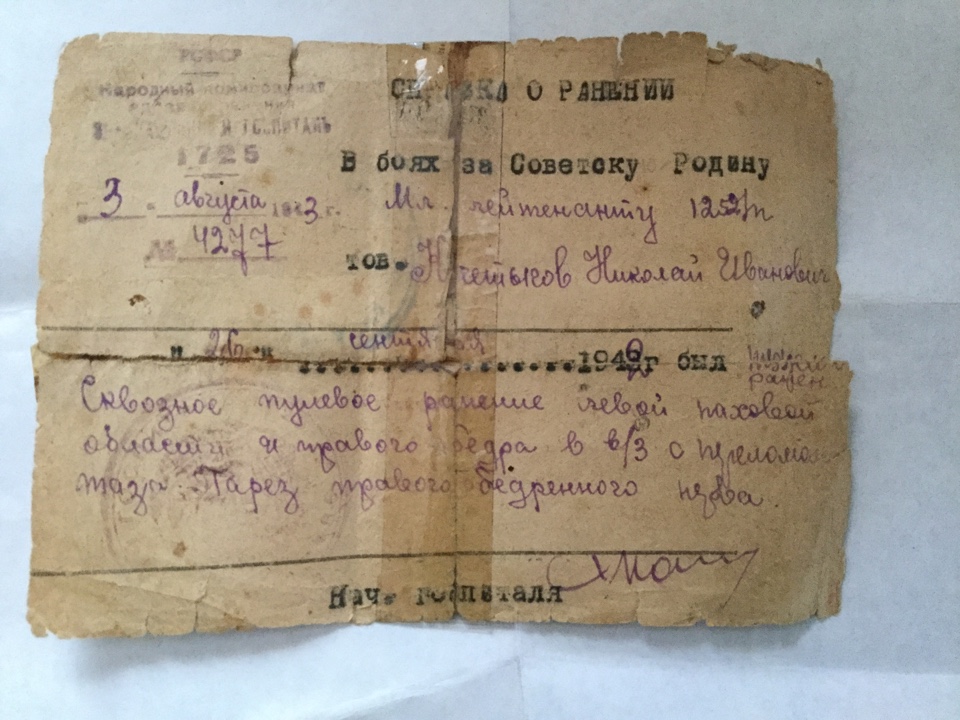 РСФСР
Народный комиссариат
здравоохранения
ГОСПИТАЛЬ
1725
СПРАВКА О РАНЕНИИ
В боях за Советску Родину
3 августа 1943 г.
Мл. лейтенанту
№ 4277
тов. Николай Иванович
и 26 и сентября 1942г был
ранен
Сквозное пулевое ранение левой паховой
области и правого бедра в в/3 с переломом
таза Парез правого бедренного нерва.
Нач. госпиталя